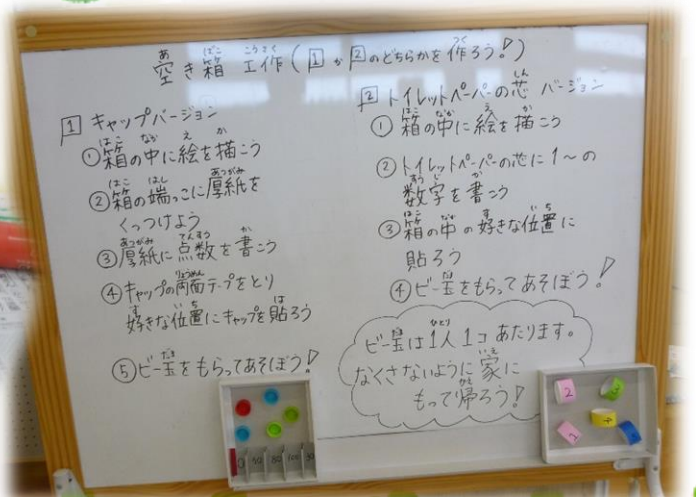 空き箱 工作(1か2のどちらかを作ろう!)
1 キャップバージョン
①箱の中に絵を描こう
②箱の端っこに厚紙を
くっつけよう
③厚紙に点数を書こう
④キャップの両面テープをとり
好きな位置にキャップを貼ろう
⑤ビー玉をもらってあそぼう!
2 トイレットペーパーの芯 バージョン
①箱の中に絵を描こう
②トイレットペーパーの芯に1〜の
数字を書こう
③箱の中の好きな位置に
貼ろう
④ビー玉をもらってあそぼう!
ビー玉は1人1コあたります。
なくさないように家に
もって帰ろう!